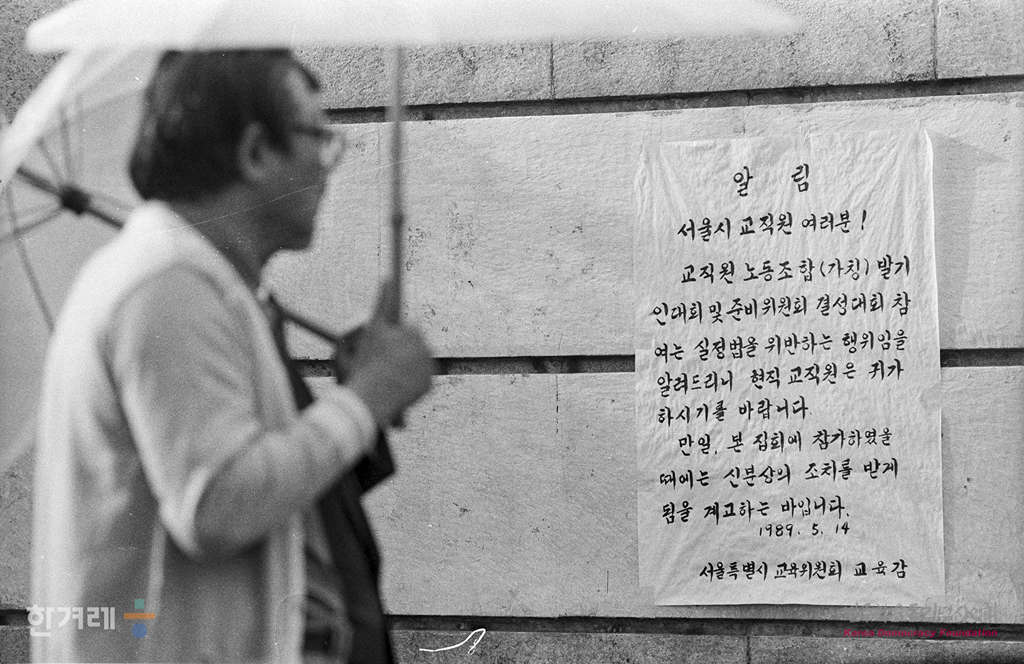 알 림
서울시 교직원 여러분!
교직원 노동조합(가칭) 발기
인대회 및 준비위원회 결성대회 참
여는 실정법을 위반하는 행위임을
알려드리니 현직 교직원은 귀가
하시기를 바랍니다.
만일, 본 집회에 참가하였을
때에는 신분상의 조치를 받게
됨을 계고하는 바입니다.
1989. 5. 14
서울특별시 교육위원회 교육감
한겨레